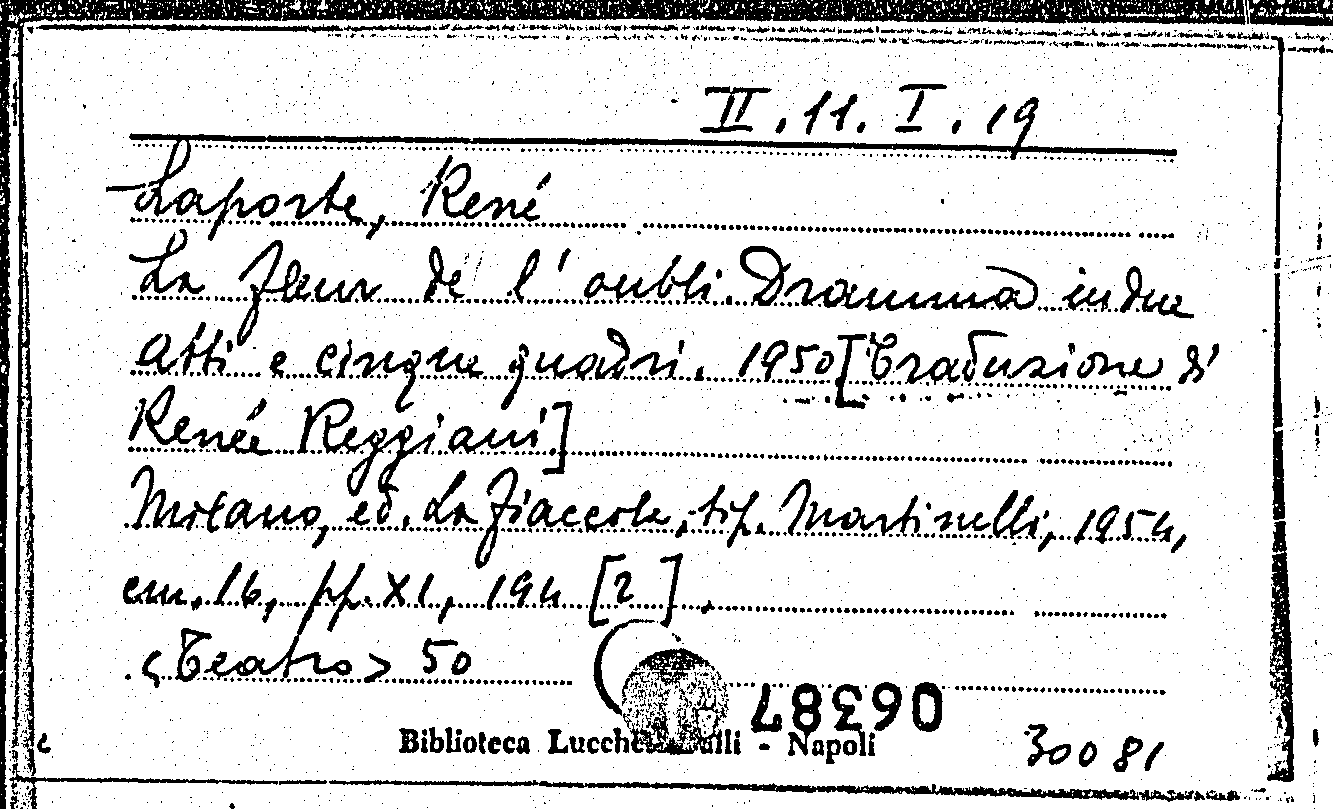 II.11.I.19
Laporte, René
La fleur de l'oubli. Dramma in due
atti e cinque quadri. 1950 [Traduzione di
Renée Reggiani]
Milano, ed. La Fiaccola, tip. Martinelli, 1954,
cm. 16, pp. XI, 194 [2].
<Teatro> 50
06387
Biblioteca - Napoli
30081